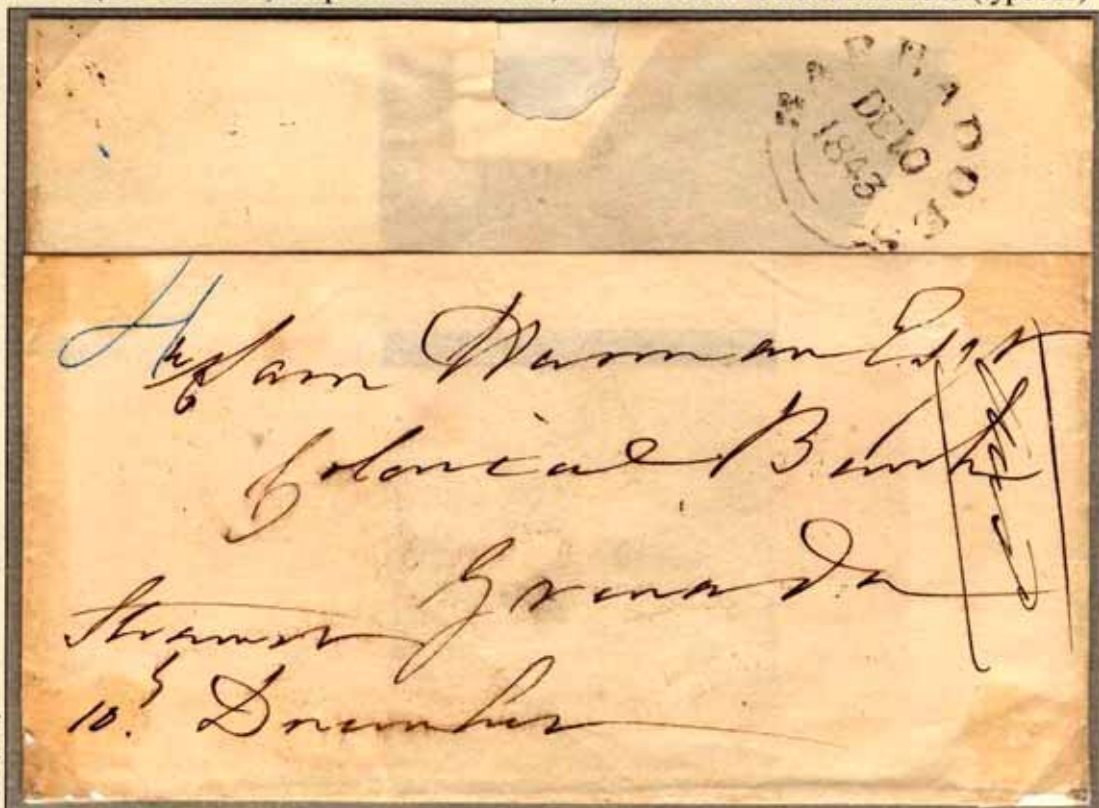 BARBADOES
DE 10
1843
4
Sam Warman Esqr
Colonial Bank
Grenada
Steamer
10th December